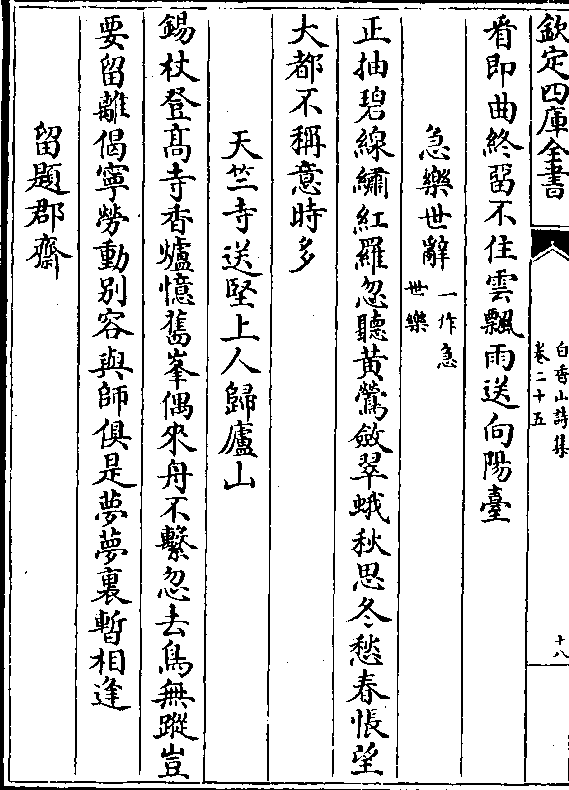 欽定四庫全書
白香山詩集
卷二十五
十八
看即曲終留不住雲飄雨送向陽臺
急樂世辭
一作急
世樂
正抽碧線繡紅羅忽聽黃鶯斂翠蛾秋思冬愁春悵望
大都不稱意時多
天竺寺送堅上人歸廬山
錫杖登髙寺香爐憶舊峯偶來舟不繫忽去鳥無蹤豈
要留離偈寧勞動別容與師俱是夢夢裏暫相逢
留題郡齋